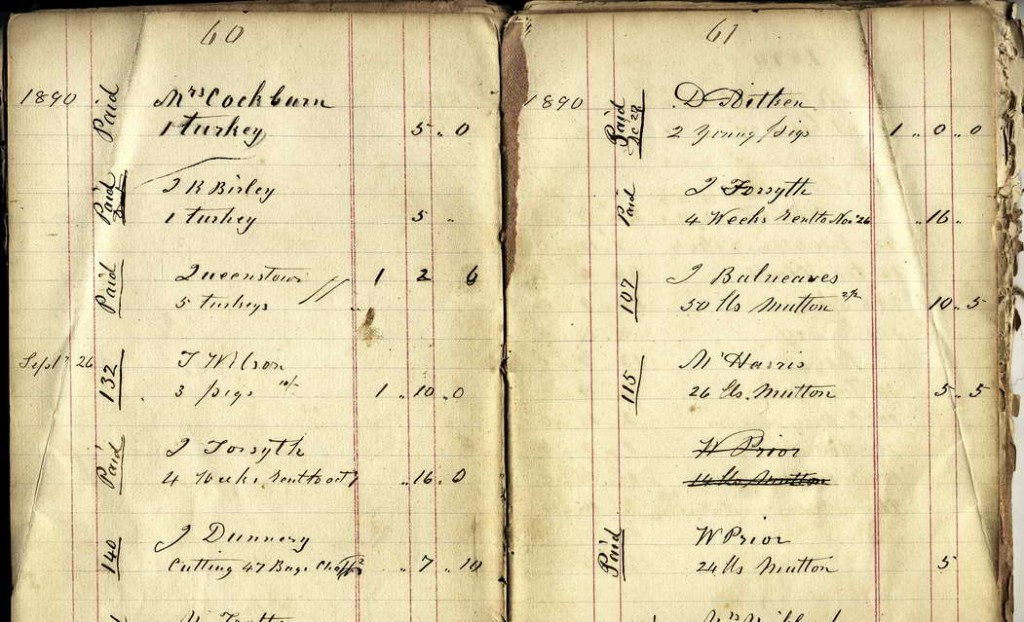 60
1890 Paid Mrs Cockburn
1 turkey 5 „ 0
Paid J R Birley
1 turkey 5 „
Paid Queenstown // 1 2 6
5 turkeys
Sept 26 132 T Wilson
3 pigs 10/- 1 „ 10 „ 0
Paid J Forsyth
4 Weeks rent to oct 7 „ 16 „ 0
140 J Dunnery
Cutting 47 Bags Chaff 2 „ 7 „ 10
61
1890 Paid Dc 29 D Aitken
2 Young pigs 1 „ 0 „ 0
Paid J Forsyth
4 Weeks rent to Nov 26 „ 16 „
107 J Balneaves
50 lbs Mutton 2½ 10 „ 5
115 M Harris
26 lbs. Mutton 5 „ 5
W Prior
14 lbs Mutton
Paid W Prior
24 lbs Mutton 5